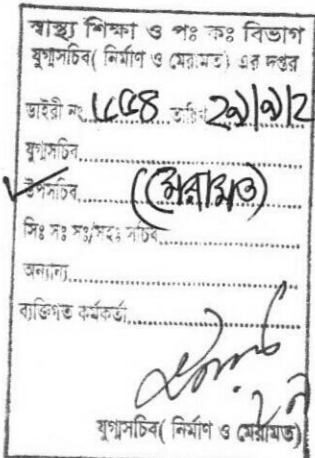 স্বাস্থ্য শিক্ষা ও পঃ কঃ বিভাগ
যুগ্মসচিব( নির্মাণ ও মেরামত) এর দপ্তর
ডাইরী নং তারিখ
যুগ্মসচিব..................
উপসচিব.......(মেরামত)
সিঃ সঃ সঃ/সহঃ সচিব..................
অন্যান্য..................
ব্যক্তিগত কর্মকর্তা..................
যুগ্মসচিব( নির্মাণ ও মেরামত)